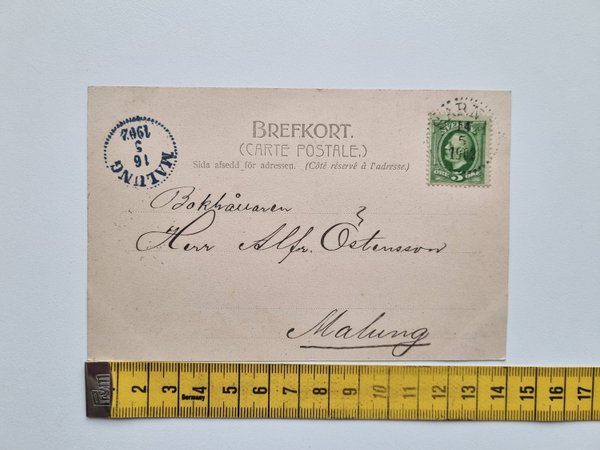 BREFKORT.
(CARTE POSTALE.)
Sida afsedd för adressen. (Côté réservé à l'adresse.)
MALUNG
16
5
1902
SVERIGE
5
ÖRE 5 ÖRE
Bokhållaren
Herr Alfr. Östensson
Malung
2 3 4 5 6 7 8 9 10 11 12 13 14 15 16 17
Germany